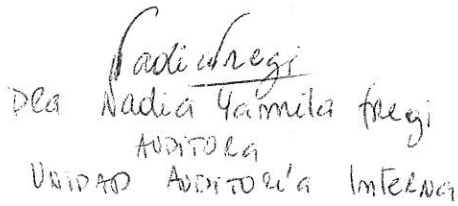 Nadia Fregi
Dra Nadia Yamila Fregi
AUDITORA
UNIDAD AUDITORÍA INTERNA